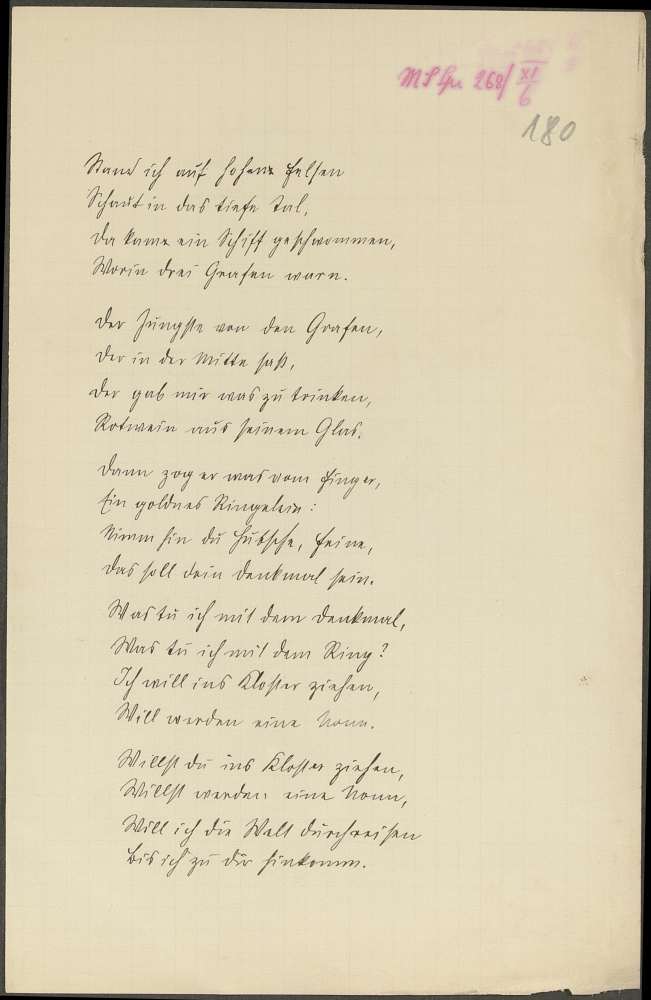 268/ XI
6
180
Stand ich auf hohem Felsen
Schaut in das tiefe Tal,
Da kam ein Schiff geschwommen,
Worin drei Grafen warn.
Der Jüngste von den Grafen,
Der in der Mitte saß,
Der gab mir was zu trinken,
Rotwein aus seinem Glas.
Dann zog er was vom Finger,
Ein goldnes Ringelein:
Nimm hin du Hübsche, Feine,
Das soll dein Denkmal sein.
Was tu ich mit dem Denkmal,
Was tu ich mit dem Ring?
Ich will ins Kloster ziehen,
Will werden eine Nonn.
Willst du ins Kloster ziehen,
Willst werden eine Nonn,
Will ich die Welt durchreisen
Bis ich zu dir hinkomm.